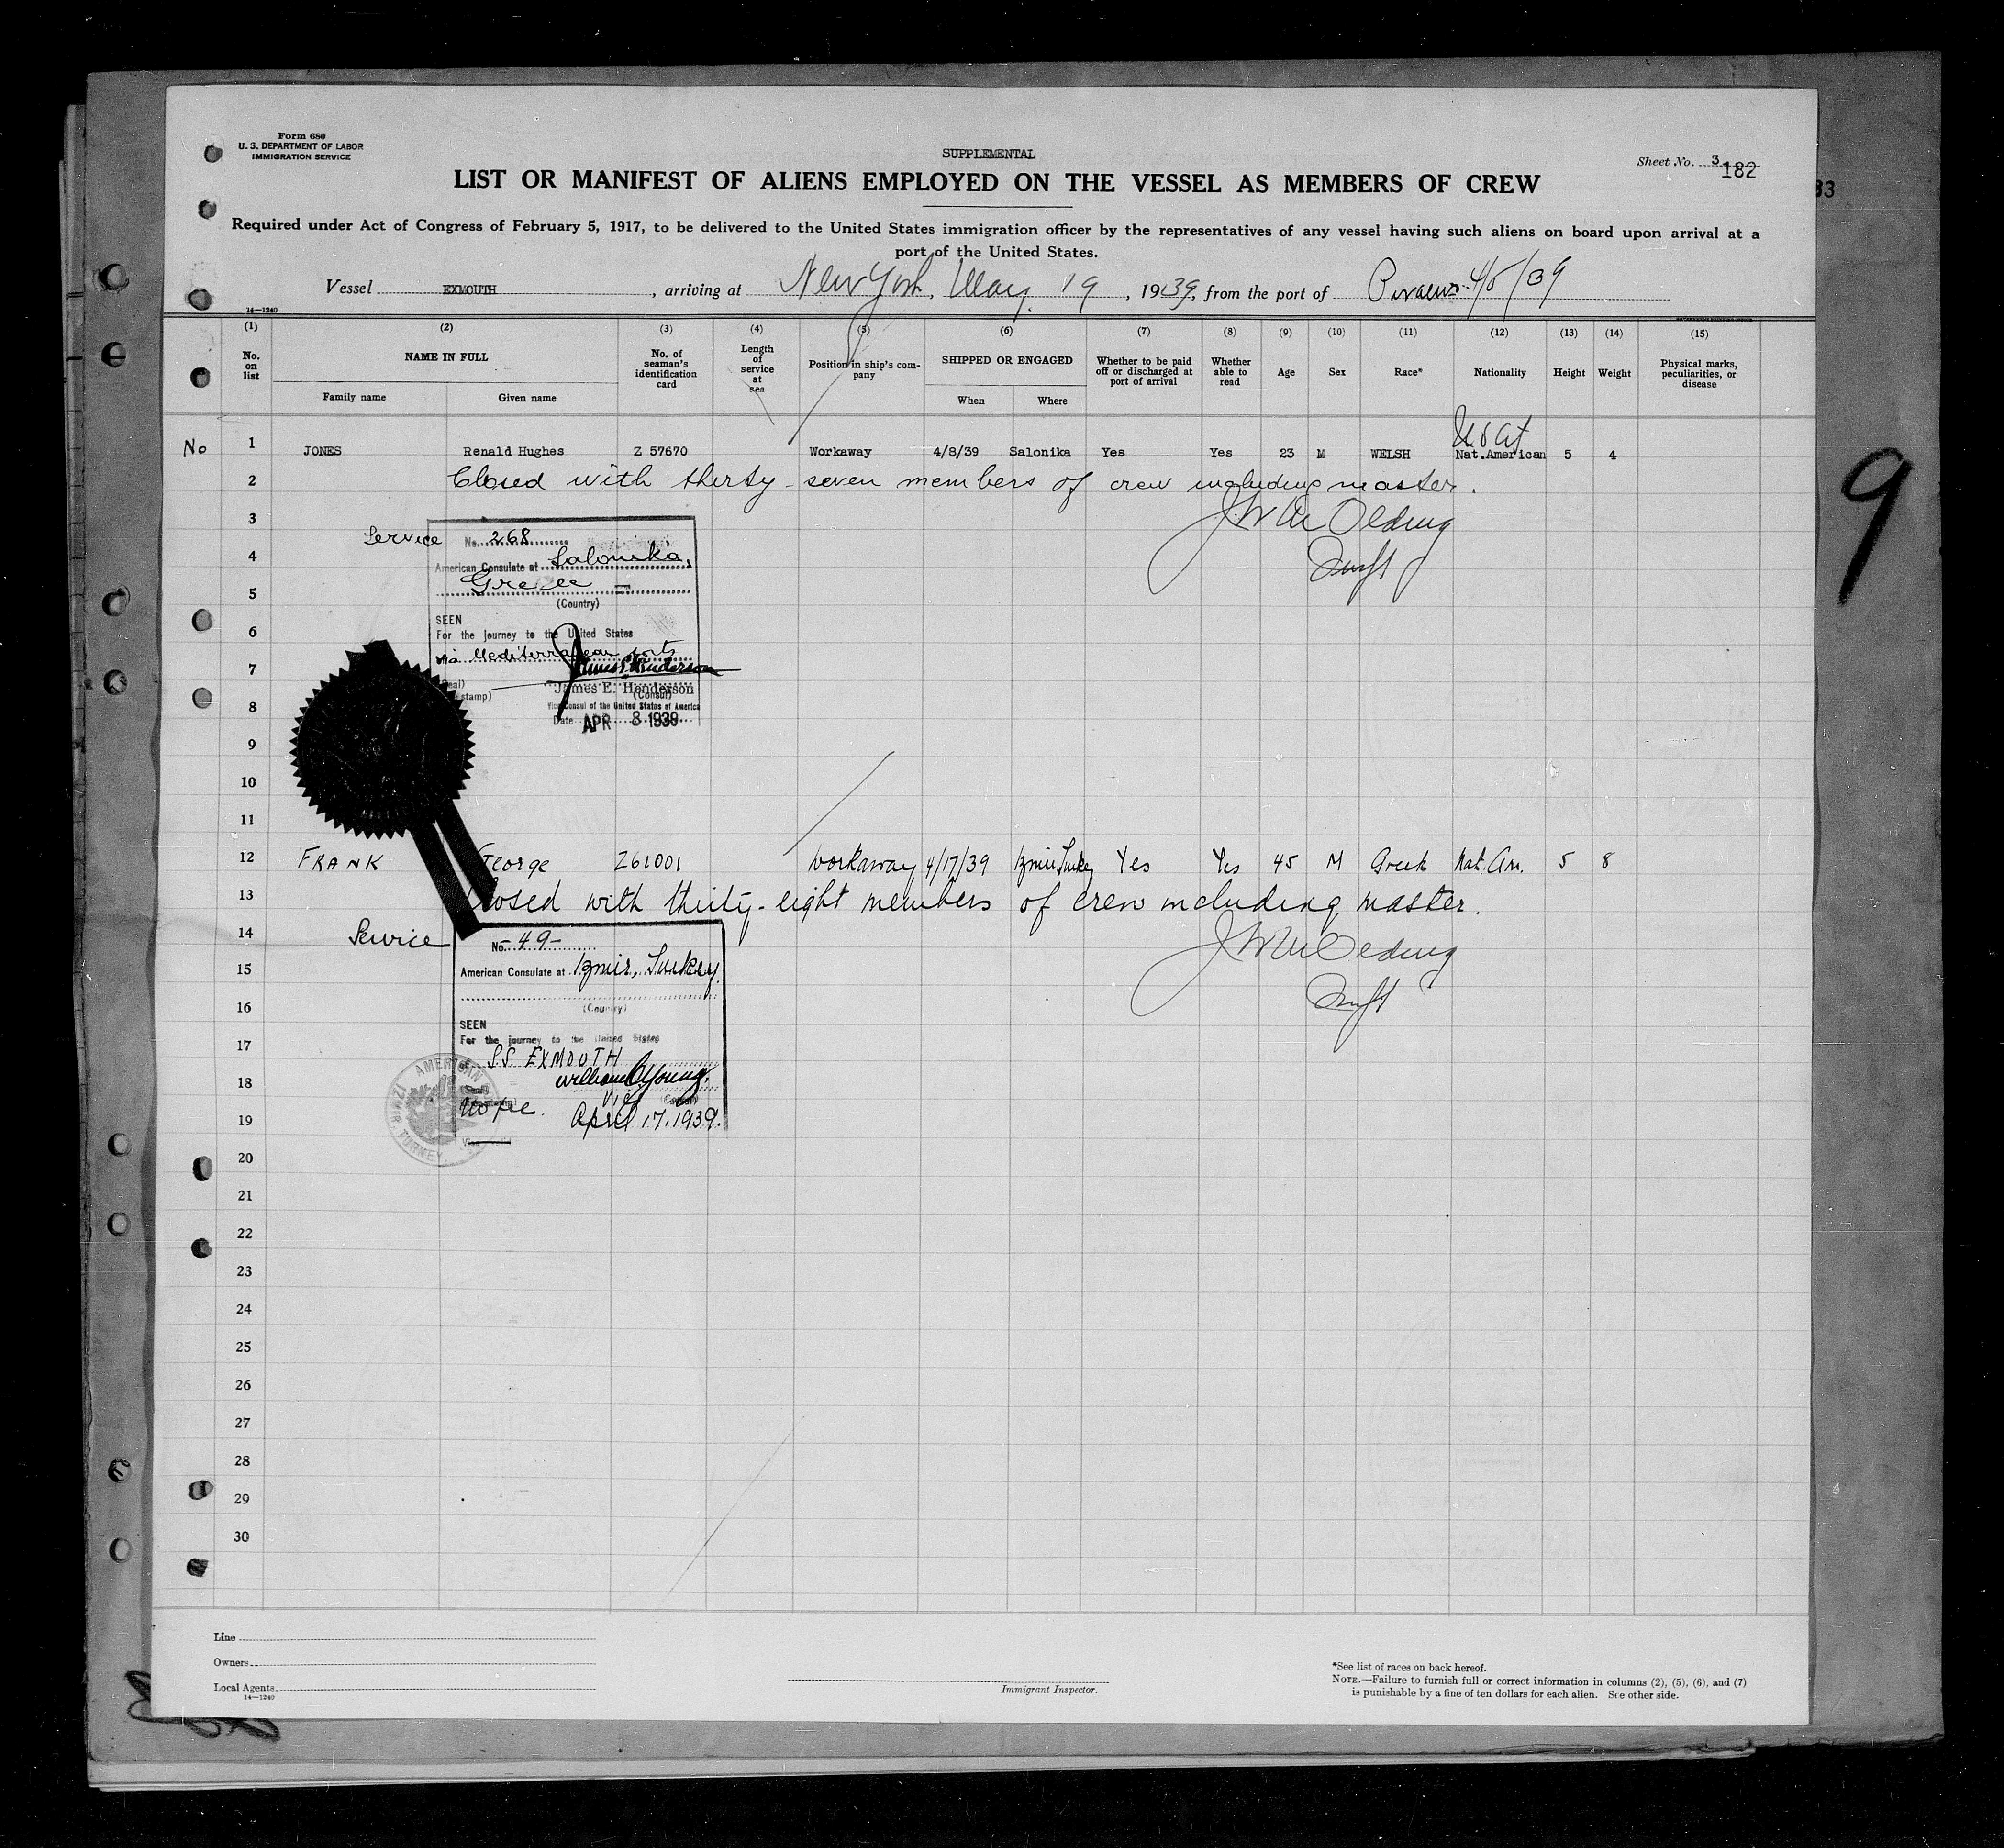 Form 680
U. S. DEPARTMENT OF LABOR
IMMIGRATION SERVICE
SUPPLEMENTAL
Sheet No. 3
182
33
LIST OR MANIFEST OF ALIENS EMPLOYED ON THE VESSEL AS MEMBERS OF CREW
Required under Act of Congress of February 5, 1917, to be delivered to the United States immigration officer by the representatives of any vessel having such aliens on board upon arrival at a
port of the United States.
Vessel EXMOUTH, arriving at New York, May 19, 1939, from the port of Piraeus 4/5/39
14—1240
(1) (2) (3) (4) (5) (6) (7) (8) (9) (10) (11) (12) (13) (14) (15)
No. on list
NAME IN FULL
Family name
Given name
No. of seaman's identification card
Length of service at sea
Position in ship's company
SHIPPED OR ENGAGED
When
Where
Whether to be paid off or discharged at port of arrival
Whether able to read
Age
Sex
Race*
Nationality
Height
Weight
Physical marks, peculiarities, or disease
No 1 JONES Renald Hughes Z 57670 Workaway 4/8/39 Salonika Yes Yes 23 M WELSH Nat.American 5 4
2 Closed with thirty-seven members of crew including master.
3
Service No. 268
4
American Consulate at Salonika,
Greece
5
(Country)
SEEN
6
For the journey to the United States
via Mediterranean ports
7
James E. Henderson
(Consul)
8
Vice Consul of the United States of America
Date APR 8 1939
9
10
11
12 FRANK George Z61001 Workaway 4/17/39 Izmir Turkey Yes Yes 45 M Greek Nat. Am. 5 8
13 Closed with thirty-eight members of crew including master.
14
Service No. -49-
15
American Consulate at Izmir, Turkey.
16
(Country)
SEEN
17
For the journey to the United States
S.S. EXMOUTH
18
William Young.
Vice
No fee.
19
April 17, 1939.
AMERICAN
IZMIR TURKEY.
20
21
22
23
24
25
26
27
28
29
30
9
Line
Owners
Local Agents
14—1240
Immigrant Inspector.
*See list of races on back hereof.
NOTE.—Failure to furnish full or correct information in columns (2), (5), (6), and (7)
is punishable by a fine of ten dollars for each alien. See other side.